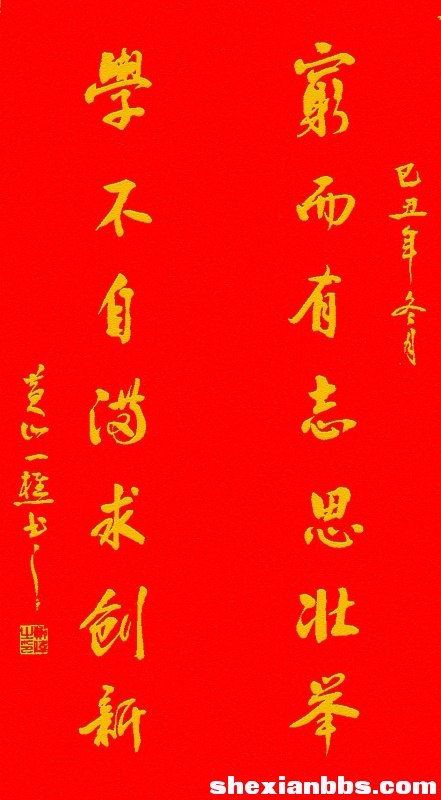 己丑年冬月
窮而有志思壮举
學不自满求创新
黄山一樵书
shexianbbs.com